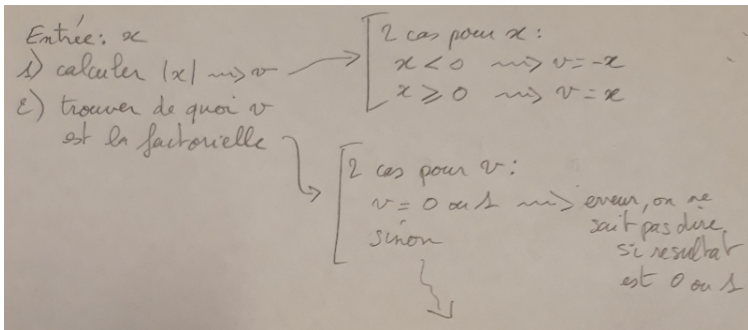 Entrée: x
1) calculer |x| ⇝ v
2) trouver de quoi v
est la factorielle
2 cas pour x:
x < 0 ⇝ v = -x
x ≥ 0 ⇝ v = x
2 cas pour v:
v = 0 ou 1 ⇝ erreur, on ne
sait pas dire
si resultat
est 0 ou 1
sinon